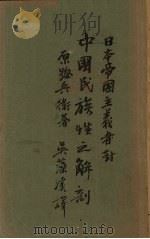 日本帝國主義者對
中國民族性之解剖
原惣兵衛著 吳藻溪譯